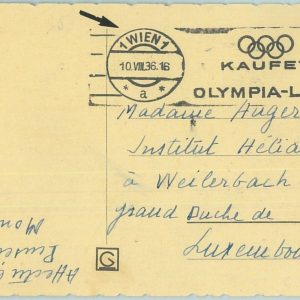 1 WIEN 1
10.VIII.36.16
* a *
KAUFET
OLYMPIA-L
Madame Auger
Institut Hélia
à Weilerbach
Grand Duché de
Luxembou
Affectu
Mon
G